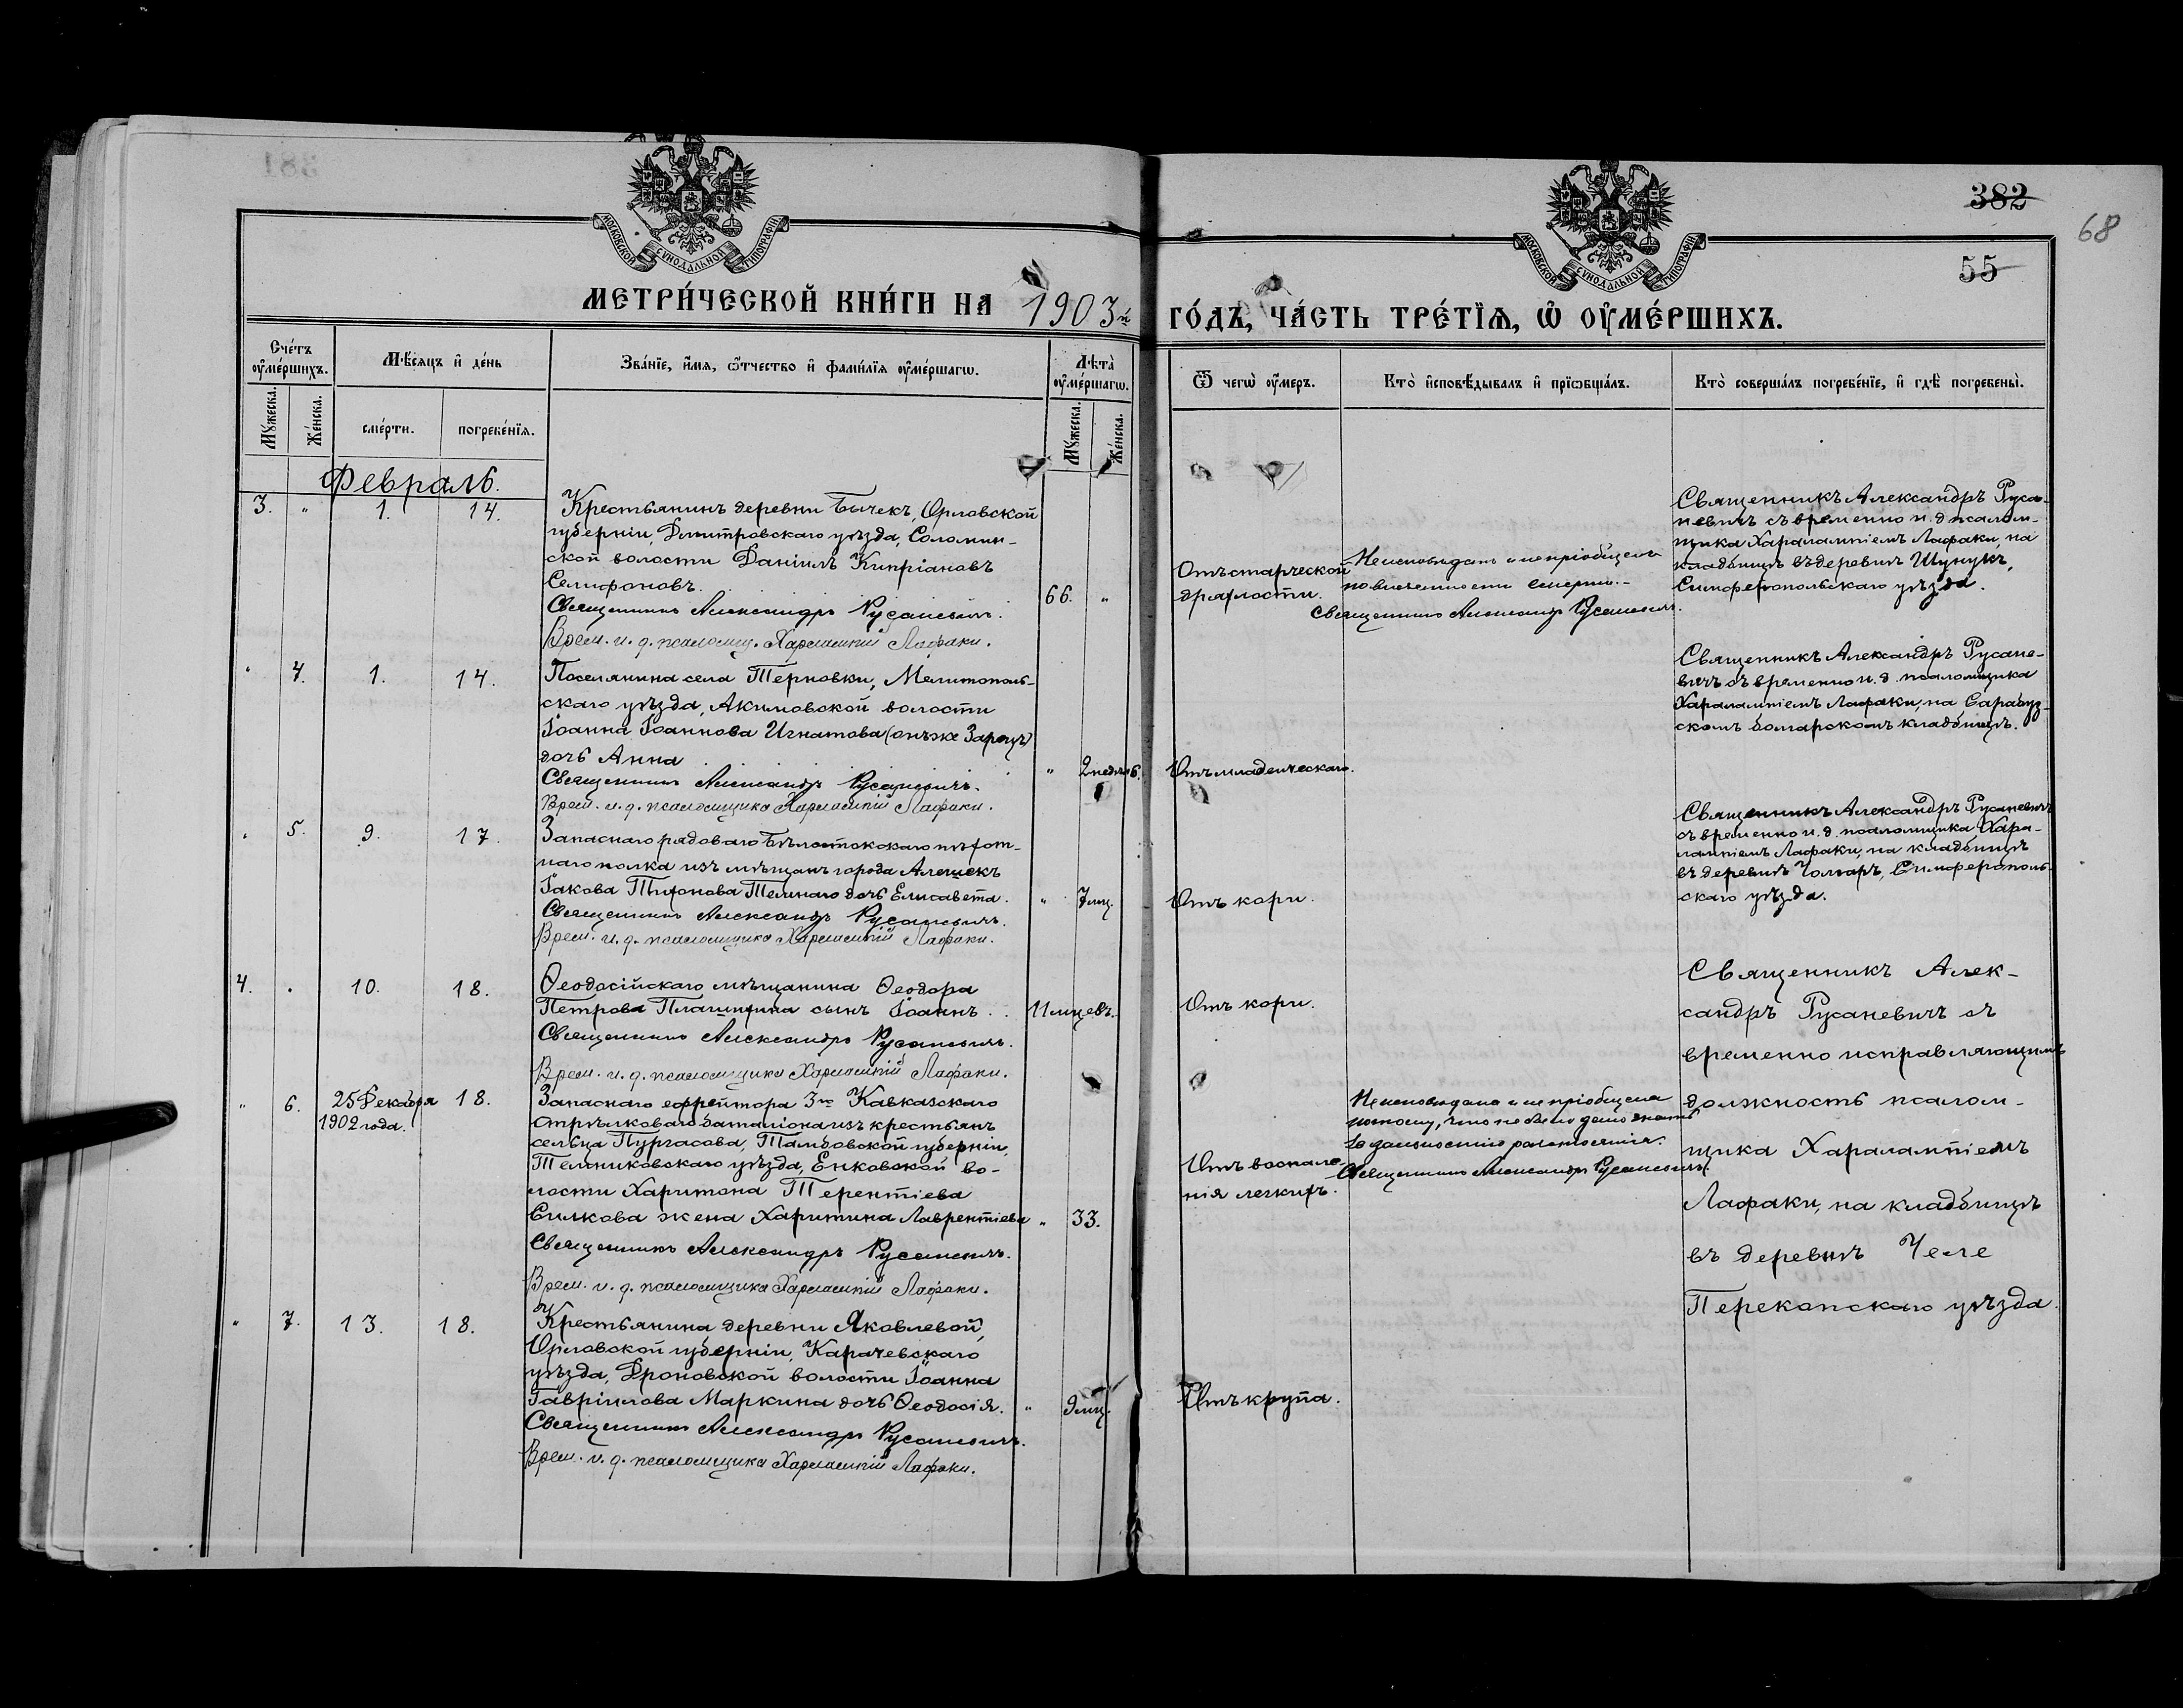 382
68
55
МОСКОВСКОЙ СѴНОДАЛЬНОЙ ТИПОГРАФІИ
МОСКОВСКОЙ СѴНОДАЛЬНОЙ ТИПОГРАФІИ
МЕТРИ́ЧЕСКОЙ КНИ́ГИ НА 1903й ГО́ДЪ, ЧА́СТЬ ТРЕ́ТЇѦ, Ѡ҆ ОУ҆МЕ́РШИХЪ.
Сче́тъ оу҆ме́ршихъ.
Мꙋ́жеска.
Же́нска.
Мѣ́сяцъ и҆ де́нь
сме́рти.
погребе́нїя.
Зва́нїе, и҆́мя, ѻ҆́тчество и҆ фами́лїя оу҆ме́ршагѡ.
Лѣ́та оу҆ме́ршагѡ.
Мꙋ́жеска.
Же́нска.
Ѿ чегѡ̀ оу҆́меръ.
Кто̀ и҆сповѣ́дывалъ и҆ прїѡбща́лъ.
Кто̀ соверша́лъ погребе́нїе, и҆ гдѣ̀ погребены̀.
Февраль.
3. " 1. 14.
Крестьянинъ деревни Бычекъ, Орловской
губерніи, Дмитровскаго уѣзда, Соломин-
ской волости Даніилъ Кипріановъ
Селифоновъ.
66. "
Священникъ Александръ Русаневичъ.
Врем. и. д. псаломщ. Харлампій Лафаки.
Отъ старческой
дряхлости.
Неисповѣданъ и непріобщенъ
по внезапности смерти.-
Священникъ Александръ Русаневичъ.
Священникъ Александръ Руса-
невичъ съ временно и. д. псалом-
щика Харалампіемъ Лафаки, на
кладбищѣ въ деревнѣ Шунукъ,
Симферопольскаго уѣзда.
" 4. 1. 14.
Поселянина села Терновки, Мелитополь-
скаго уѣзда, Акимовской волости
Іоанна Іоаннова Игнатова (онъ же Зарецъ)
дочь Анна
" 2 недѣль.
Священникъ Александръ Русаневичъ.
Врем. и. д. псаломщика Харлампій Лафаки.
Отъ младенческаго.
Священникъ Александръ Русане-
вичъ съ временно и. д. псаломщика
Харалампіемъ Лафаки, на Сарабуз-
скомъ болгарскомъ кладбищѣ.
" 5. 9. 17.
Запаснаго рядоваго Бѣлостокскаго пѣхот-
наго полка изъ мѣщанъ города Алешекъ
Іакова Тихонова дочь Елисавета.
" 7 мц.
Священникъ Александръ Русаневичъ.
Врем. и. д. псаломщика Харлампій Лафаки.
Отъ кори.
Священникъ Александръ Русаневичъ
съ временно и. д. псаломщика Хара-
лампіемъ Лафаки, на кладбищѣ
въ деревнѣ Чонгаръ, Симферополь-
скаго уѣзда.
4. " 10. 18.
Ѳеодосійскаго мѣщанина Ѳеодора
Петрова сынъ Іоаннъ.
11 мцевъ.
Священникъ Александръ Русаневичъ.
Врем. и. д. псаломщика Харлампій Лафаки.
Отъ кори.
Священникъ Алек-
сандръ Русаневичъ съ
временно исправляющимъ
должность псалом-
щика Харалампіемъ
Лафаки, на кладбищѣ
въ деревнѣ Челе
Перекопскаго уѣзда.
" 6. 25 Декабря 18.
1902 года.
Запаснаго ефрейтора 3го Кавказскаго
стрѣлковаго баталіона изъ крестьянъ
сельца Пургасова, Тамбовской губерніи,
Темниковскаго уѣзда, Енковской во-
лости Харитона Терентіева
Силкова жена Харитина Лаврентіева
" 33.
Священникъ Александръ Русаневичъ.
Врем. и. д. псаломщика Харлампій Лафаки.
Отъ воспале-
нія легкихъ.
Неисповѣдана и не пріобщена
потому, что не было дано знать
за дальностію разстоянія.
Священникъ Александръ Русаневичъ.
" 7. 13. 18.
Крестьянина деревни Яковлевой,
Орловской губерніи, Карачевскаго
уѣзда, Дроновской волости Іоанна
Гавріилова Маркина дочь Ѳеодосія.
" 9 мц.
Священникъ Александръ Русаневичъ.
Врем. и. д. псаломщика Харлампій Лафаки.
Отъ крупа.